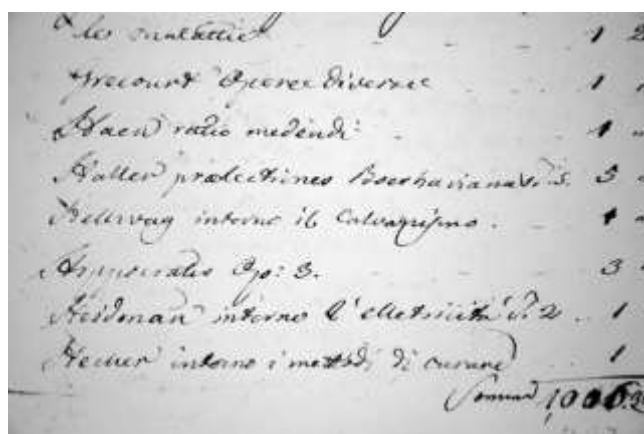 le malattie 1 2
Grecourt Opere diverse 1
Haen ratio medendi 1
Haller prælectiones Boerhaviana t. 5. 5
Hellwag intorno il Galvanismo. 1
Hyppocratis Op: 3. 3
Heidman intorno l'elettricità t. 2 1
Hecker intorno i metodi di curare 1
Somma 1006